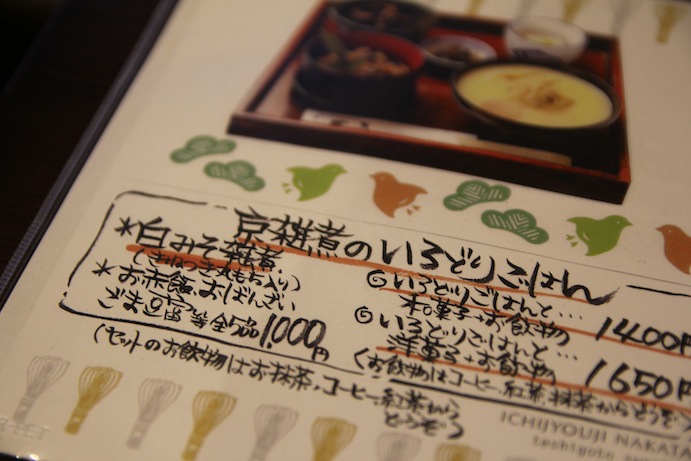 京雑煮のいろどりごはん
*白みそ雑煮
(きねつき丸もち入り)
*お赤飯、おばんざい
ごま豆富等全5品 1000円
(セットのお飲物はお抹茶、コーヒー、紅茶から
どうぞ)
◎いろどりごはんと…
和菓子+お飲物 1400円
◎いろどりごはんと…
洋菓子+お飲物 1650円
(お飲物はコーヒー、紅茶、抹茶からどうぞ)
ICHIJYOUJI NAKATA
teshigoto